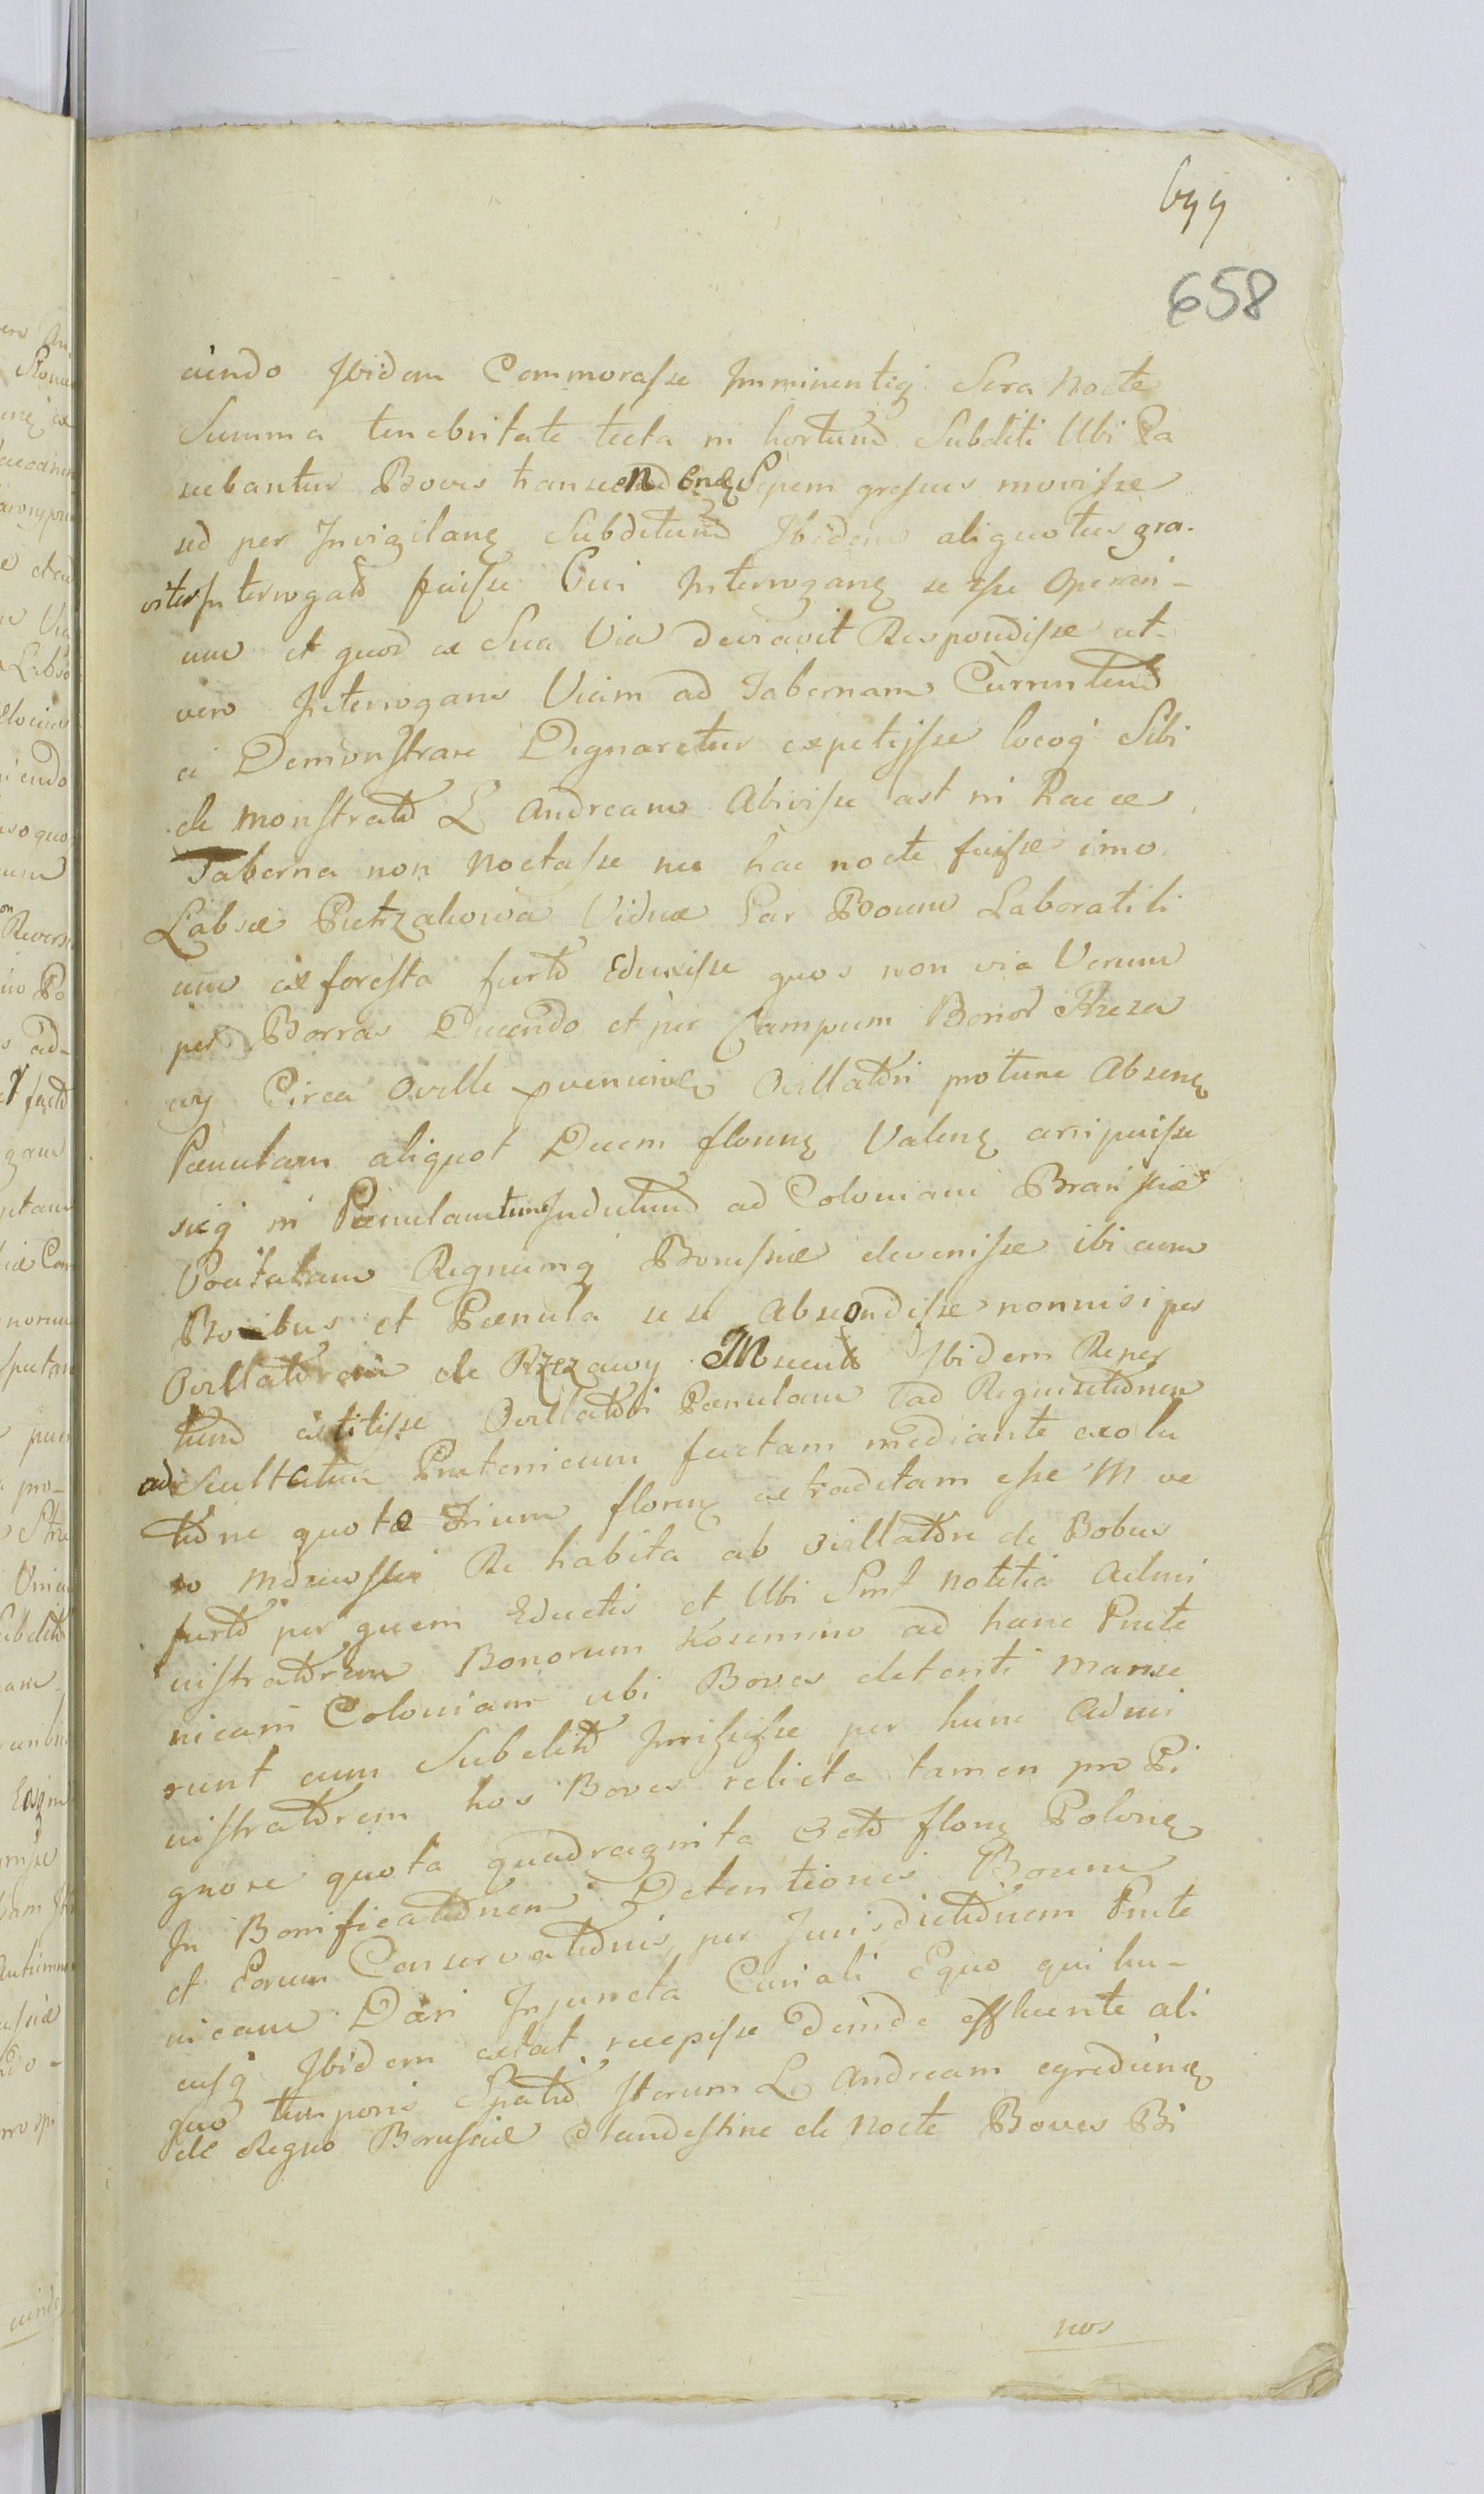 699
658
uendo Ibidem Commorasse Imminentiq Sera Nocte
Summa tenebritate tecta in hortum Subditi Ubi Pa
scebantur Boves transcendend Sepem gressus movisse
sed per Invigilan Subditum Ibidem aliquoties gra-
viter Interrogatum fuisse Cui Interrogan se esse operari-
um et quod ex Sua Via deviavit Respondisse at-
vero Interrogans Viam ad Tabernam Currentem
ei Demonstrare Dignaretur expetijsse locoq Sibi
de monstrato L Andream Abivisse ast in hacce
Taberna non Noctasse nec hac nocte fuisse imo
Labor Pietrzakowa Viduæ Par Boum Laboratili
um ex foresta furto Eduxisse quos non via Verum
per Borras Ducendo et per Campum Bonor Rzeza
wy Circa Oville pveniend Ovillatori protunc Absen
Pænulam aliquot Decem floren Valen arripuisse
sicq in Pænulam tunc Indutum ad Coloniam Bransciæ
Vocitatam Regnumq Borussiæ devenisse ibi cum
Bovibus et Pænula se se abscondisse nonnisi per
Ovillatorem de Rzezawy Ibidem Reper
tum extitisse Ovillatori Pænulam ad Requisitionem
ad Scultetum Prutenicum factam mediante exolu
tione quotæ Trium floren extraditam esse M ve
ro Re habita ab Ovillatore de Bobus
furto per quem Eductis et Ubi Sint notitia Admi
nistratorem Bonorum Kosemino ad hanc Prute
nicam Coloniam ubi Boves detenti manse
runt cum Subdito per hunc Admi
nistratorem hos Boves relicta tamen pro Pi
gnore quota quadraginta Octo floren Polon
In Bonificationem Detentionis Boum
et Eorum Conservationis per Jurisdictionem Prute
nicam Dari Injuncta Curiali Equo qui hu-
cusq Ibidem extat recepisse Deinde effluente ali
quo temporis Spatio Iterum L Andream egrediend
de Regno Borussiæ Clandestine de Nocte Boves Bi
nos